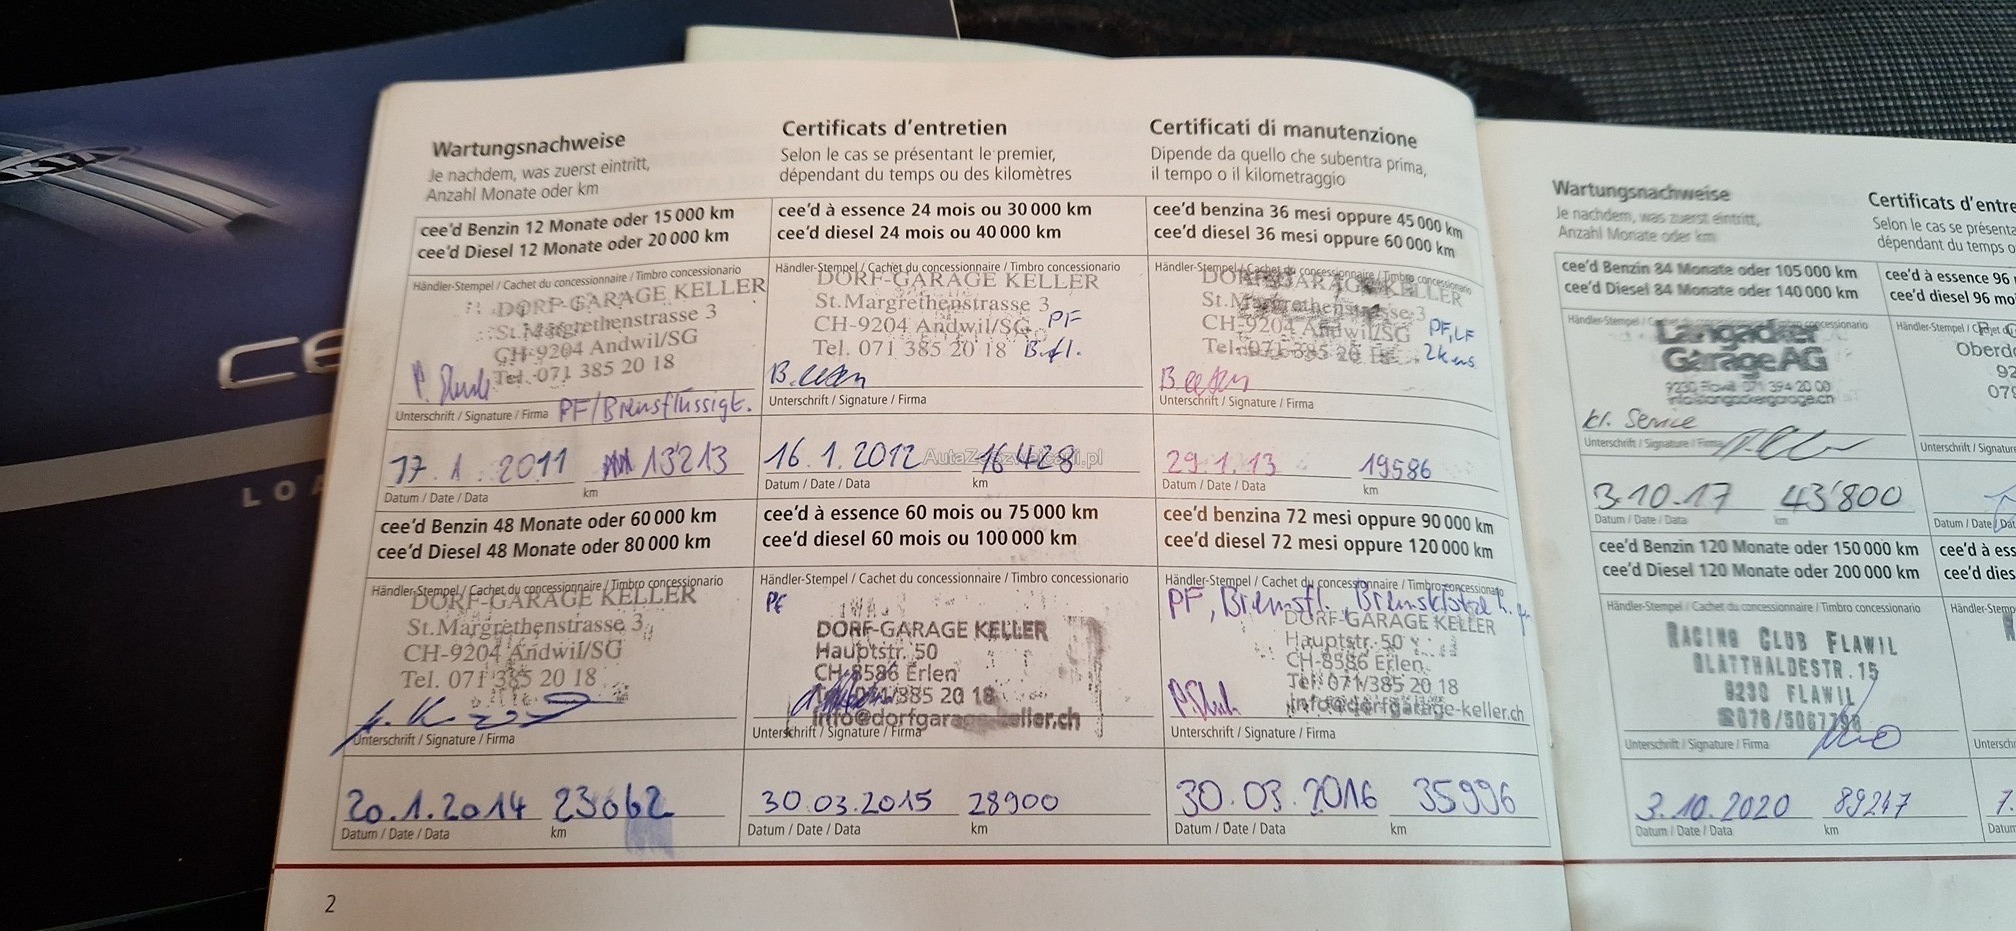 KIA
CE
LOA
Wartungsnachweise
Je nachdem, was zuerst eintritt,
Anzahl Monate oder km
Certificats d'entretien
Selon le cas se présentant le premier,
dépendant du temps ou des kilomètres
Certificati di manutenzione
Dipende da quello che subentra prima,
il tempo o il kilometraggio
cee'd Benzin 12 Monate oder 15 000 km
cee'd Diesel 12 Monate oder 20 000 km
Händler-Stempel / Cachet du concessionnaire / Timbro concessionario
DORF-GARAGE KELLER
St.Margrethenstrasse 3
CH-9204 Andwil/SG
Tel. 071 385 20 18
Unterschrift / Signature / Firma PF/Bremsflüssigt.
17.1.2011 13'213
Datum / Date / Data km
cee'd à essence 24 mois ou 30 000 km
cee'd diesel 24 mois ou 40 000 km
Händler-Stempel / Cachet du concessionnaire / Timbro concessionario
DORF-GARAGE KELLER
St.Margrethenstrasse 3
CH-9204 Andwil/SG PF
Tel. 071 385 20 18 B.fl.
Unterschrift / Signature / Firma
16.1.2012 16428
AutaZeSzwajcarii.pl
Datum / Date / Data km
cee'd benzina 36 mesi oppure 45 000 km
cee'd diesel 36 mesi oppure 60 000 km
Händler-Stempel / Cachet du concessionnaire / Timbro concessionario
DORF-GARAGE KELLER
St.Margrethenstrasse 3
CH-9204 Andwil/SG PF, LF
Tel. 071 385 20 18
Unterschrift / Signature / Firma
29.1.13 19586
Datum / Date / Data km
cee'd Benzin 48 Monate oder 60 000 km
cee'd Diesel 48 Monate oder 80 000 km
Händler-Stempel / Cachet du concessionnaire / Timbro concessionario
DORF-GARAGE KELLER
St.Margrethenstrasse 3
CH-9204 Andwil/SG
Tel. 071 385 20 18
Unterschrift / Signature / Firma
20.1.2014 23062
Datum / Date / Data km
cee'd à essence 60 mois ou 75 000 km
cee'd diesel 60 mois ou 100 000 km
Händler-Stempel / Cachet du concessionnaire / Timbro concessionario
PF
DORF-GARAGE KELLER
Hauptstr. 50
CH-8586 Erlen
Tel. 071/385 20 18
info@dorfgarage-keller.ch
Unterschrift / Signature / Firma
30.03.2015 28900
Datum / Date / Data km
cee'd benzina 72 mesi oppure 90 000 km
cee'd diesel 72 mesi oppure 120 000 km
Händler-Stempel / Cachet du concessionnaire / Timbro concessionario
PF, Bremsfl. Bremsklötze h.
DORF-GARAGE KELLER
Hauptstr. 50
CH-8586 Erlen
Tel. 071/385 20 18
info@dorfgarage-keller.ch
Unterschrift / Signature / Firma
30.03.2016 35996
Datum / Date / Data km
2
Wartungsnachweise
Je nachdem, was zuerst eintritt,
Anzahl Monate oder km
Certificats d'entre
Selon le cas se présenta
dépendant du temps o
cee'd Benzin 84 Monate oder 105 000 km
cee'd Diesel 84 Monate oder 140 000 km
Händler-Stempel / Cachet du concessionnaire / Timbro concessionario
Langacker
Garage AG
9230 Flawil 071 394 20 00
info@langackergarage.ch
kl. Service
Unterschrift / Signature / Firma
3.10.17 43'800
Datum / Date / Data km
cee'd à essence 96
cee'd diesel 96 mo
Händler-Stempel / Cachet du
Oberdo
92
079
Unterschrift
Datum / Date / Dat
cee'd Benzin 120 Monate oder 150 000 km
cee'd Diesel 120 Monate oder 200 000 km
Händler-Stempel / Cachet du concessionnaire / Timbro concessionario
RACING CLUB FLAWIL
GLATTHALDESTR. 15
9230 FLAWIL
☎078/5067796
Unterschrift / Signature / Firma
3.10.2020 89247
Datum / Date / Data km
cee'd à ess
cee'd dies
Händler-Stemp
Untersch
7.
Datum